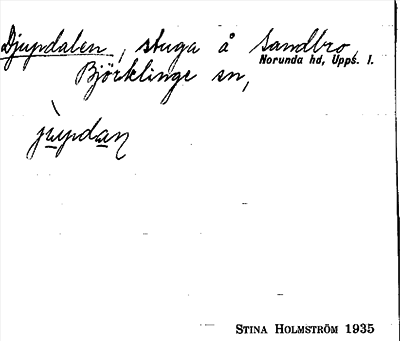 Djupdalen, stuga å Sandbro,
Norunda hd, Upps. l.
Björklinge sn,
jùpdaṇ
STINA HOLMSTRÖM 1935